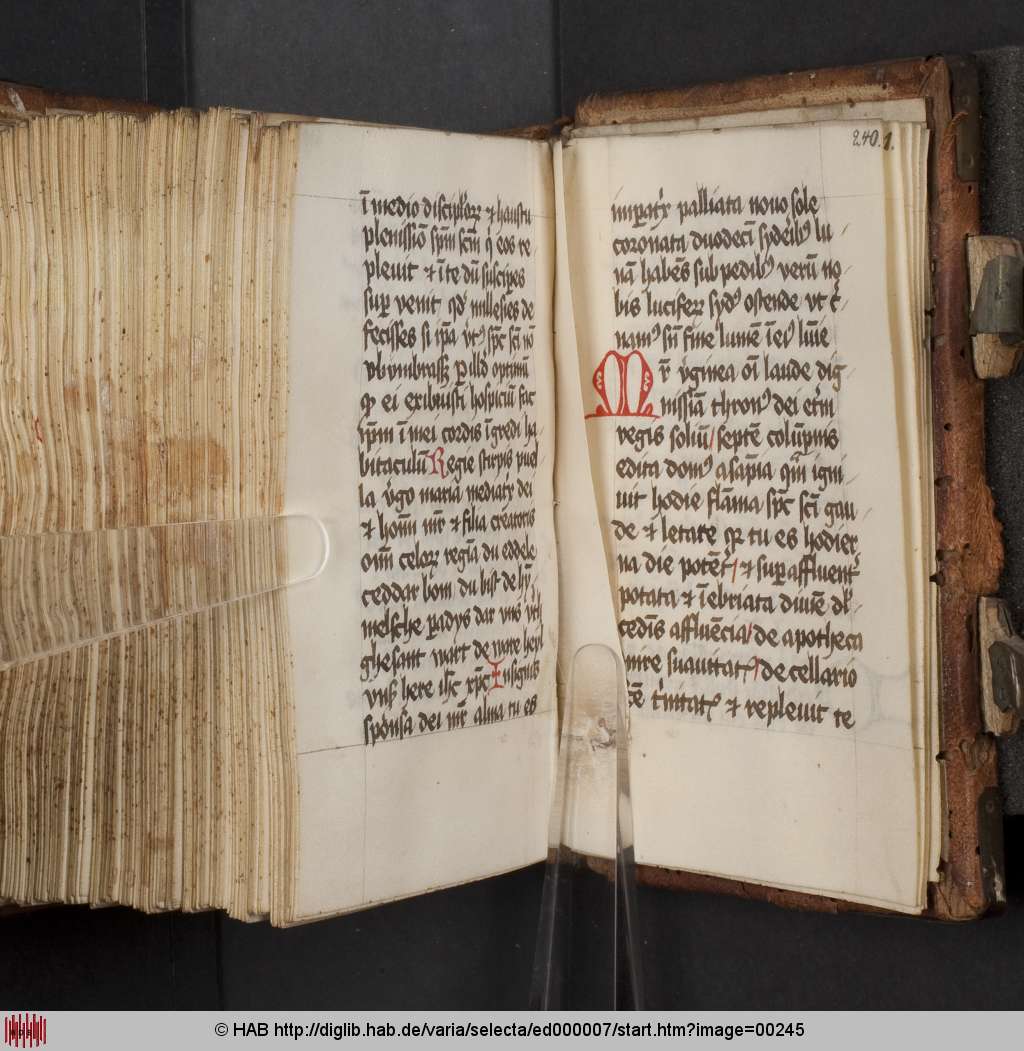 ī medio discipl'oꝝ ⁊ haustu
plenissiō sp̄m scm̄ q' eos re
pleuit ⁊ ī te dū suscipes
suꝑ venit qd' millesies de
fecisses si ip̄a v't9 sp̄c scī nō
ei exibuisti hospiciū fac
ip̄m ī mei cordis īgredi ha
bitaculū Regie stirpis puel
la v'go maria mediatx dei
⁊ hoīm mr̄ ⁊ filia creatoris
oīm celoꝝ regīa du eddele
ceddar bom du bist de hȳ
melsche ꝑadys dar vns
ghesant wart de ware heyl
vnß here ih̄c xp̄c Insignis
sponsa dei mr̄ alma tu es
240.1.
imꝑatx palliata nouo sole
coronata duodecī syderib9 lu
nā habēs sub pedib9 verū no
bis luciferꝝ syd9 ostende vt c'
nam9 sn̄ fine lumē ī ei9 lūīe
Mr̄ v'ginea oī laude dig
nissīa thron9 dei et'ni
regis soliū septē colūpnis
edita dom9 a sapīa qm̄ igni
uit hodie flāma sp̄c scī gau
de ⁊ letare qr tu es hodier
na die potēt' ⁊ suꝑ affluent'
potata ⁊ īebriata diuīe
cedīs affluēcia de apotheca
mire suauitat de cellario
t'nitat ⁊ repleuit te
© HAB http://diglib.hab.de/varia/selecta/ed000007/start.htm?image=00245